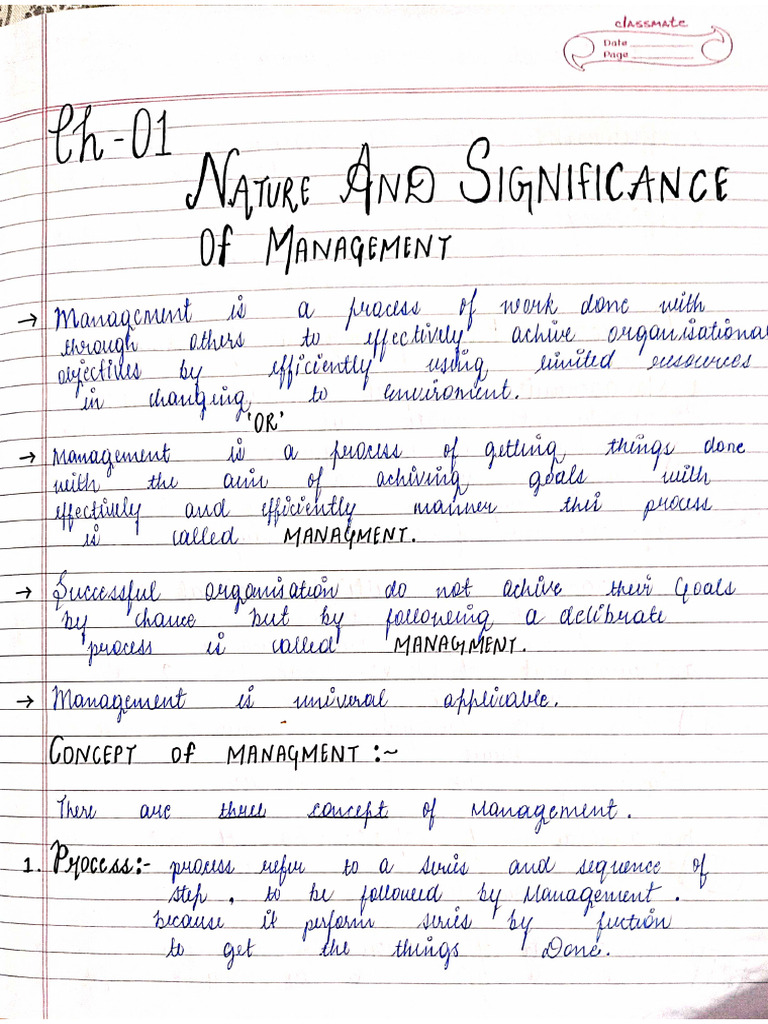 classmate
Date
Page
Ch-01
NATURE AND SIGNIFICANCE
Of MANAGEMENT
→ Management is a process of work done with
through others to effectively achive organisational
objectives by efficiently using limited resources
in changing to enviroment.
'OR'
→ Management is a process of getting things done
with the aim of achiving goals with
effectively and efficiently manner this process
is called MANAGMENT.
→ Successful organisation do not achive their Goals
by chance but by following a delibrate
process is called MANAGMENT.
→ Management is univeral applicable.
CONCEPT of MANAGMENT :~
There are three concept of Management.
1. PROCESS:- process refer to a series and sequence of
step, to be followed by Management.
because it perform series by fuction
to get the things Done.